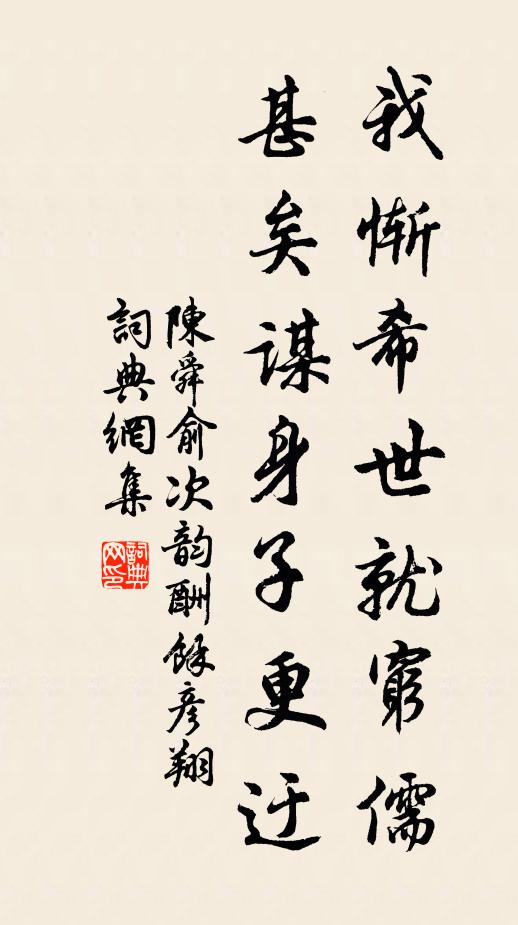 我慚希世就窮儒
甚矣謀身子更迂
陳舜俞次韵酬餘彦翔
詞典網集
詞典网印